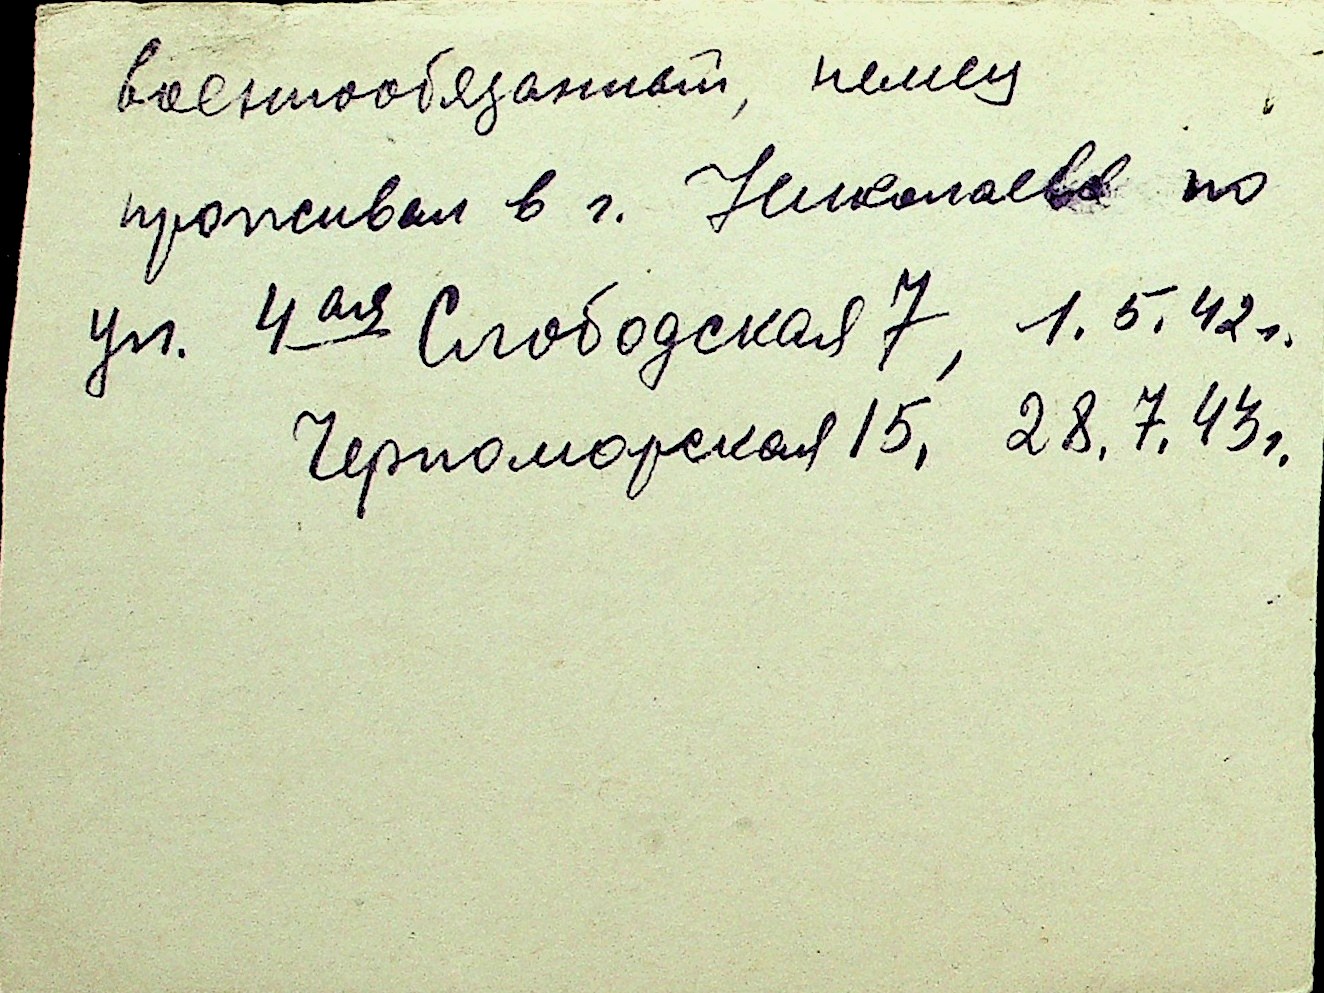 военнообязанный, немец
проживал в г. Николаеве по
ул. 4ая Слободская 7, 1.5.42г.
Черноморская 15, 28.7.43г.